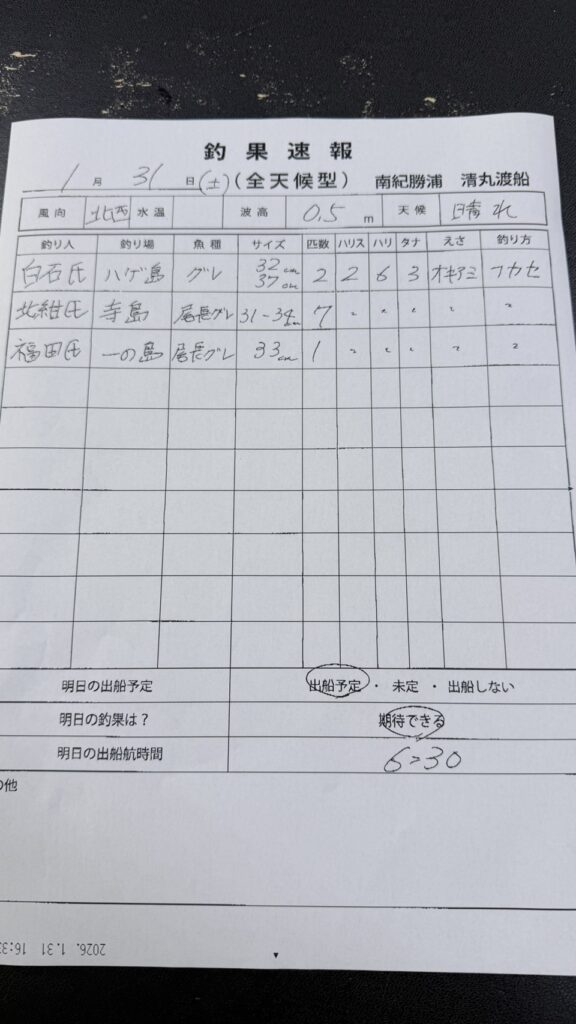 釣果速報
1月31日(土)(全天候型) 南紀勝浦 清丸渡船
風向 北西 水温 波高 0.5m 天候 晴れ
釣り人 釣り場 魚種 サイズ 匹数 ハリス ハリ タナ えさ 釣り方
白石氏 ハゲ島 グレ 32cm 37cm 2 2 6 3 オキアミ フカセ
北紺氏 寺島 尾長グレ 31-34cm 7 〃 〃 〃 〃 〃
福田氏 一の島 尾長グレ 33cm 1 〃 〃 〃 〃 〃
明日の出船予定 出船予定 ・ 未定 ・ 出船しない
明日の釣果は? 期待できる
明日の出船航時間 6:30
の他
2026. 1.31 16:3